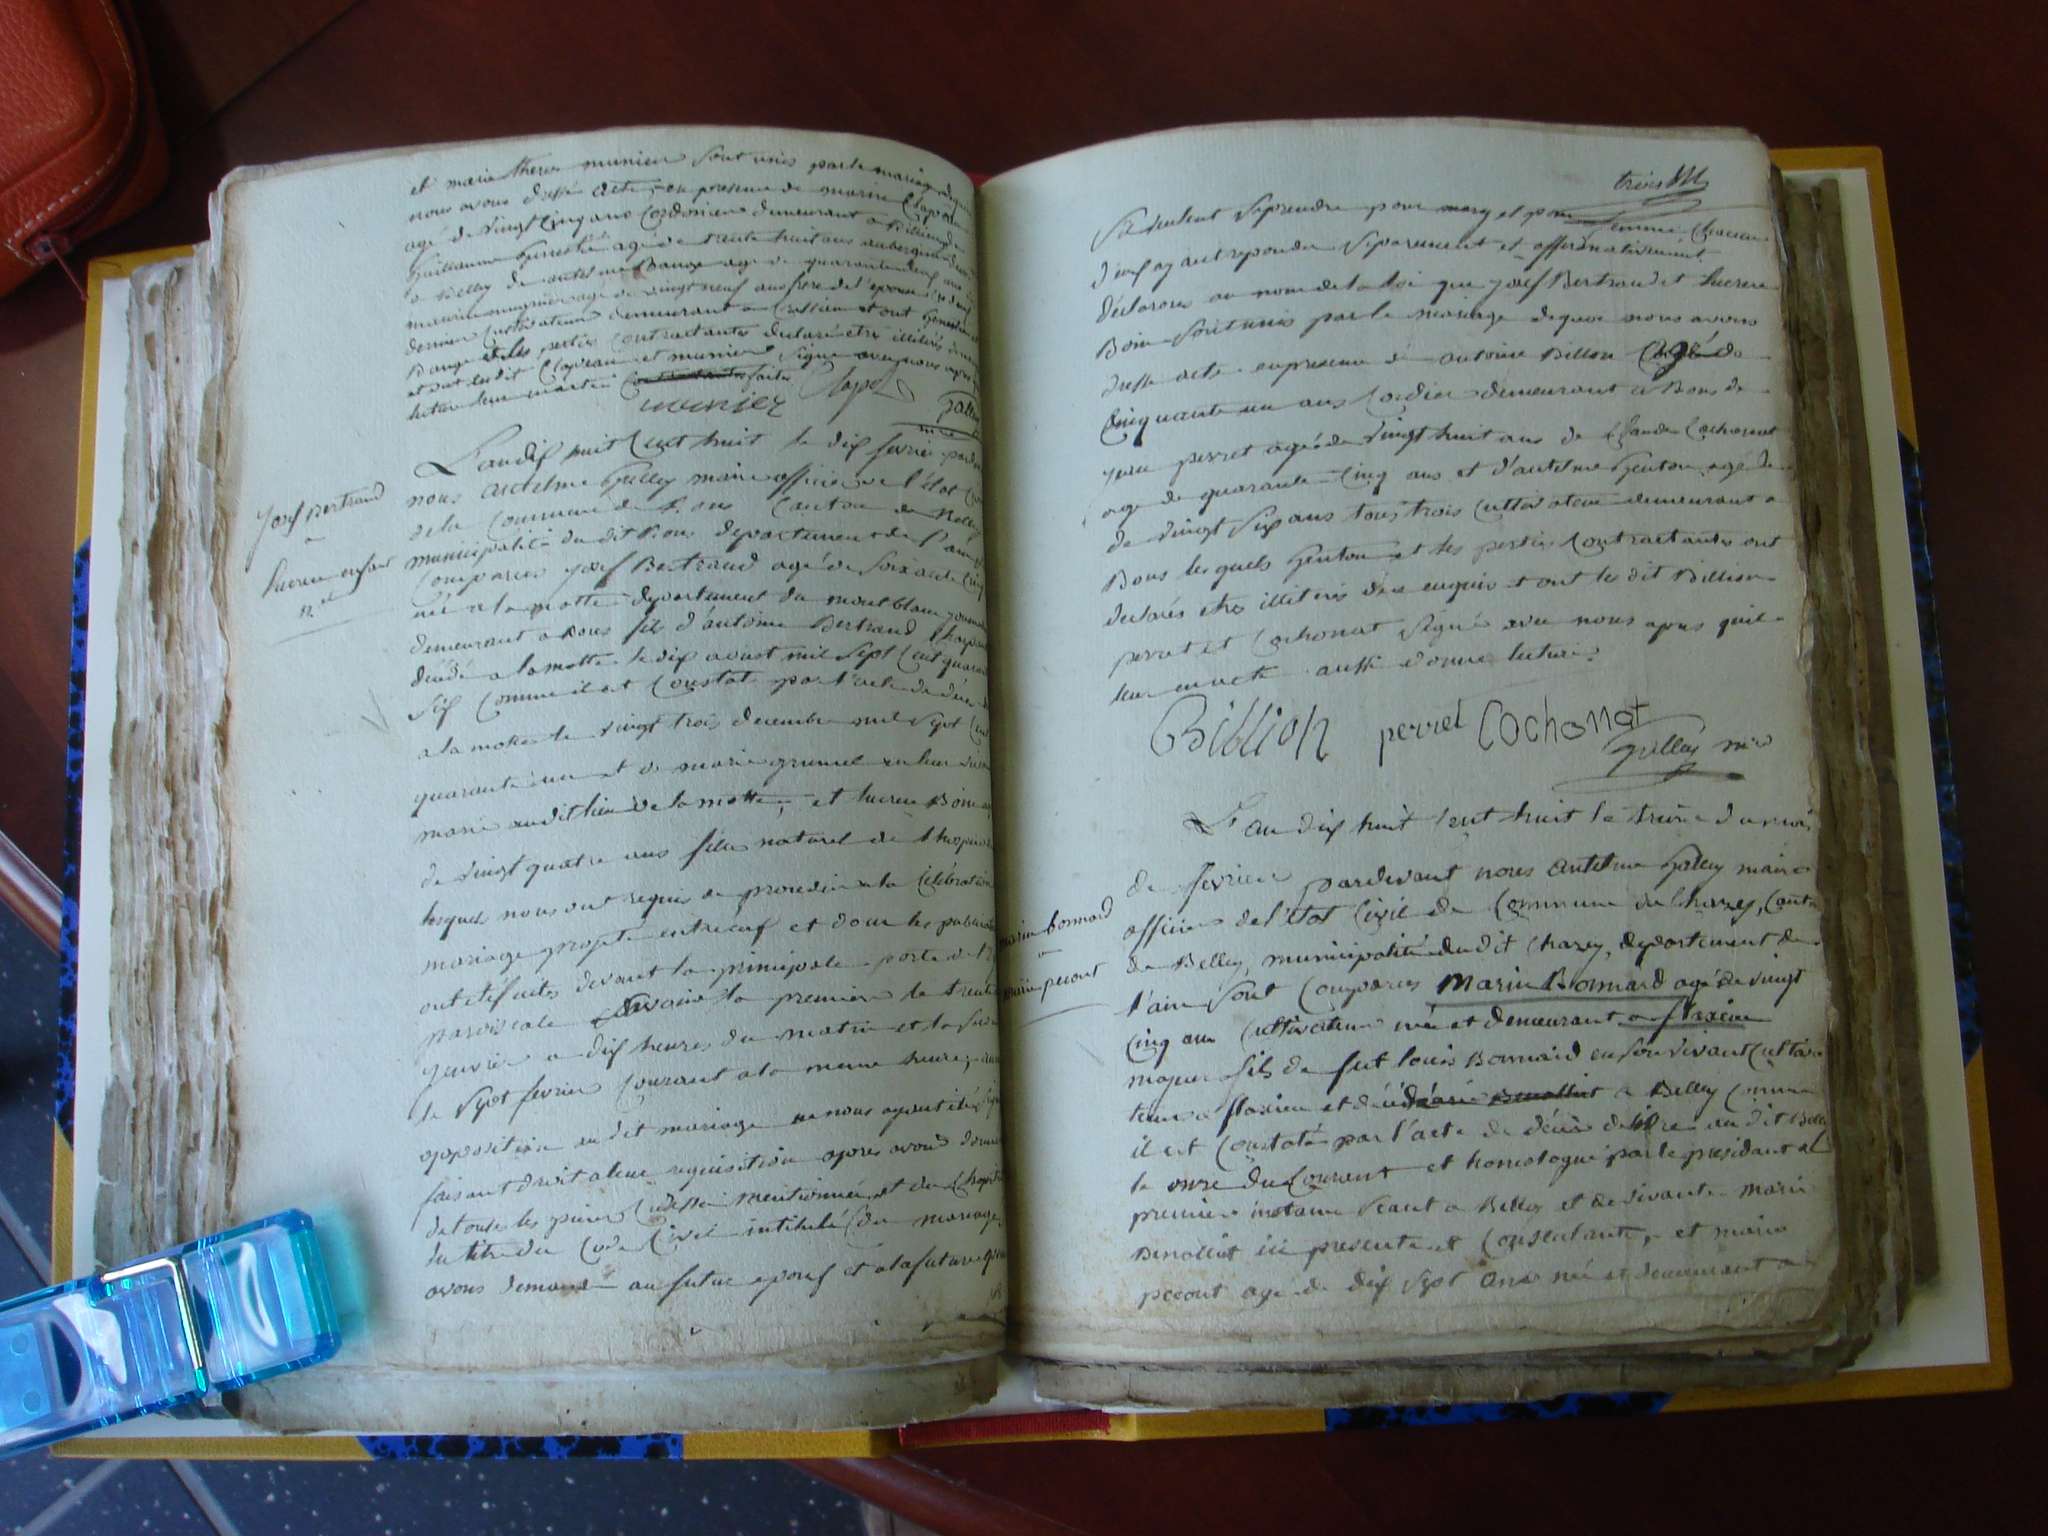 et marie therese munier sont unis par le mariage de quoi
nous avons dressé acte, en presence de marin Clapeau
agé de vingt cinq ans Cordonier demeurant a Billieu de
Guillaume agé de trente huit ans aubergiste
a Belley de antelme Bauge age de quarante neuf ans
maurice munier agé de vingt neuf ans frere de l'epouse
dernier Cultivateur demeurant a et ont
Bauge et les partis Contractantes declaré etre illiterés
et ont lesdit Clapeau et munier signé avec nous apres
lecture leur faite
munier Clapeau Gallay
mre
L'an dix huit Cent huit le dix fevrier par devant
nous antelme Gallay maire officier de l'état Civil
de la Commune de Bons Canton de Belley
municipalité du dit Bons departement de l'ain
Comparus josef Bertrand agé de soixante Cinq
né a la motte departement du montblanc journalier
demeurant a Bons fils d'antoine Bertrand
décédé a la motte le dix avust mil sept Cent quarante
six Comme il est Constaté par l'acte de décès
a la motte le vingt trois decembre mil sept Cent
quarante un et de marie grumel en leur vivant
marié audit lieu de la motte, et lucrece Boin agée
de vingt quatre ans fille naturel de l'hospice
lesquels nous ont requis de proceder a la Célébration
mariage projeté entre eux et dont les publications
ont été faites devant la principale porte de l'Eglise
paroissiale savoir la premiere le trente
janvier a dix heures du matin et la seconde
le sept fevrier Courant a la meme heure, aucune
opposition au dit mariage ne nous ayant été signifiée
faisant droit a leur requisition apres avoir donné
de toutes les pieces Cidessu mentionnée, et du Chapitre
du titre du Code Civil intitulé du mariage
avons demandé au futur epoux et a la future
josef Bertrand
a
lucrece enfan
n.el
treize
S'il veulent se prendre pour mary et pour femme, Chacun
d'eux ayant repondu separement et affirmativement
declarons au nom de la loi que josef Bertrand et lucrece
Boin sont unis par le mariage de quoi nous avons
dressé acte en presence de antoine Billion agé de
Cinquante un ans Cordier demeurant a Bons de
perret agé de vingt huit ans de Claude Cochonat
age de quarante Cinq ans et d'antelme Genton agé de
de vingt six ans tous trois Cultivateur demeurant a
Bons les quels Genton et les partis Contractantes ont
declarés etre illiterés de ce enquis et ont les dit Billion
perret et Cochonat signé avec nous apres quil
leur en a été aussi donné lecture.
Billion perret Cochonat
Gallay mre
L'an dix huit Cent huit le treize du mois
de fevrier pardevant nous antelme Gallay maire
officier de l'état Civil de la Commune de Chazey, Canton
de Belley, municipalité du dit Chazey, departement de
l'ain sont Comparus Marin Bonnard agé de vingt
Cinq ans Cultivateur né et demeurant a flaxieu
majeur fils de fut louis Bonnard en son vivant Cultiva
teur a flaxieu et décédé a Belley Comme
il est Constaté par l'acte de décès délivré au dit Belley
le onze du Courant et homologué par le president de
premiere instance séant a Belley et de vivante marie
Benollit ici presente et Consentante, et marie
pecout agé de dix sept ans née et demeurant a
marin bonnard
a
marie pecout